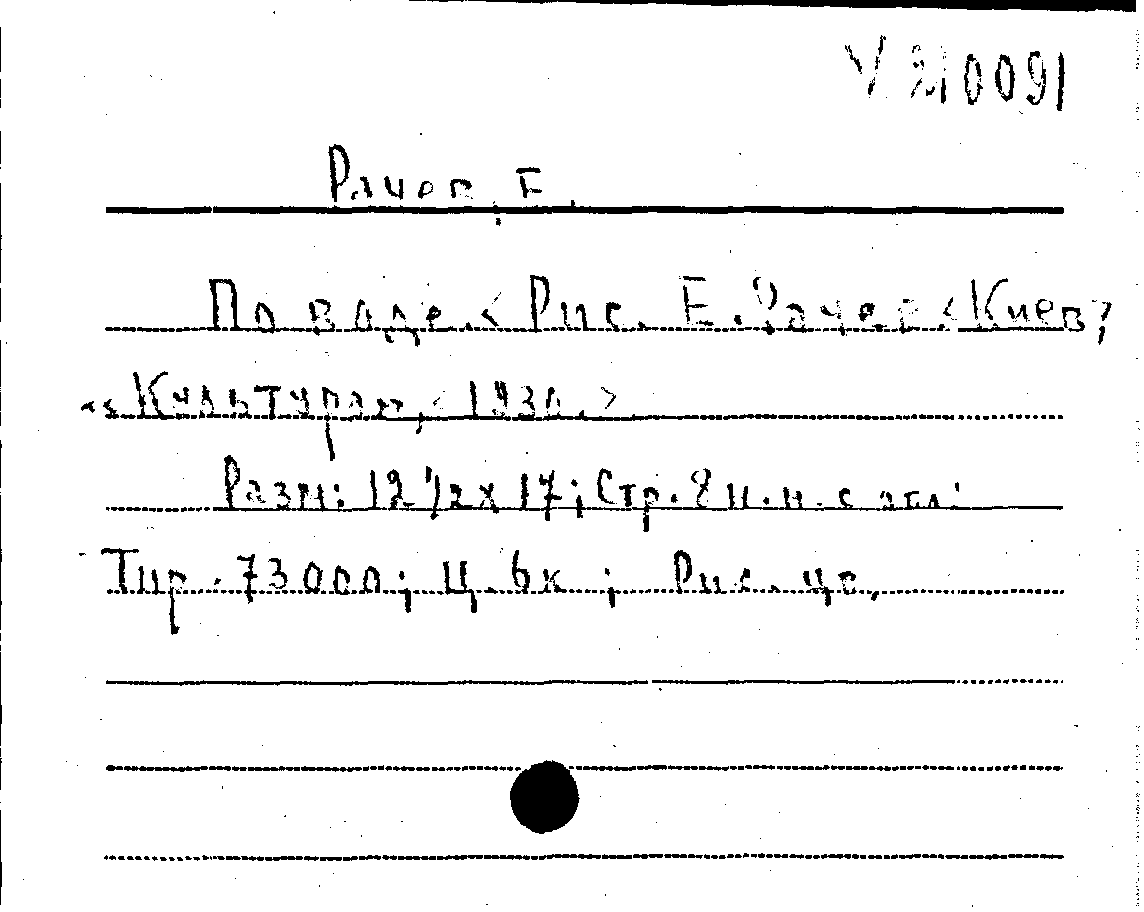 Рачев, Е.
По воде.< Рис. Е. Рачев <Киев,
«Культура», <1930.>
Разм: 12 1/2 х 17; Стр. 8 н.н. с
Тир. 73000; Ц. 6к ; Рис. цв.